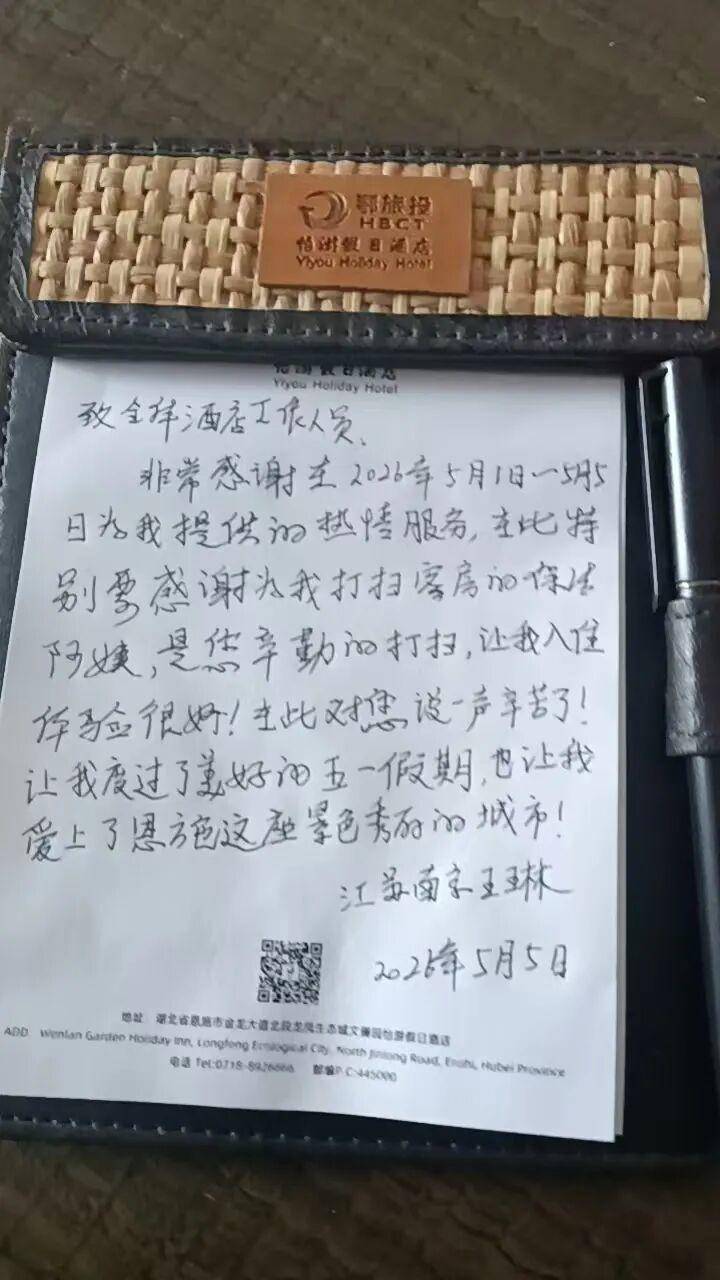 鄂旅投
HBCT
怡游假日酒店
Yiyou Holiday Hotel
怡游假日酒店
Yiyou Holiday Hotel
致全体酒店工作人员、
非常感谢在2026年5月1日一5月5
日为我提供的热情服务,在此特
别要感谢为我打扫客房的保洁
阿姨,是您辛勤的打扫,让我入住
体验很好!在此对您说一声辛苦了!
让我度过了美好的五一假期,也让我
爱上了恩施这座景色秀丽的城市!
江苏南京王玉林
2026年5月5日
地址:湖北省恩施市金龙大道北段龙凤生态城文澜园怡游假日酒店
ADD Wenlan Garden Holiday Inn, Longfong Ecological City, North Jinlong Road, Enshi, Hubei Province
电话 Tel:0718-8926666 邮编P.C:445000